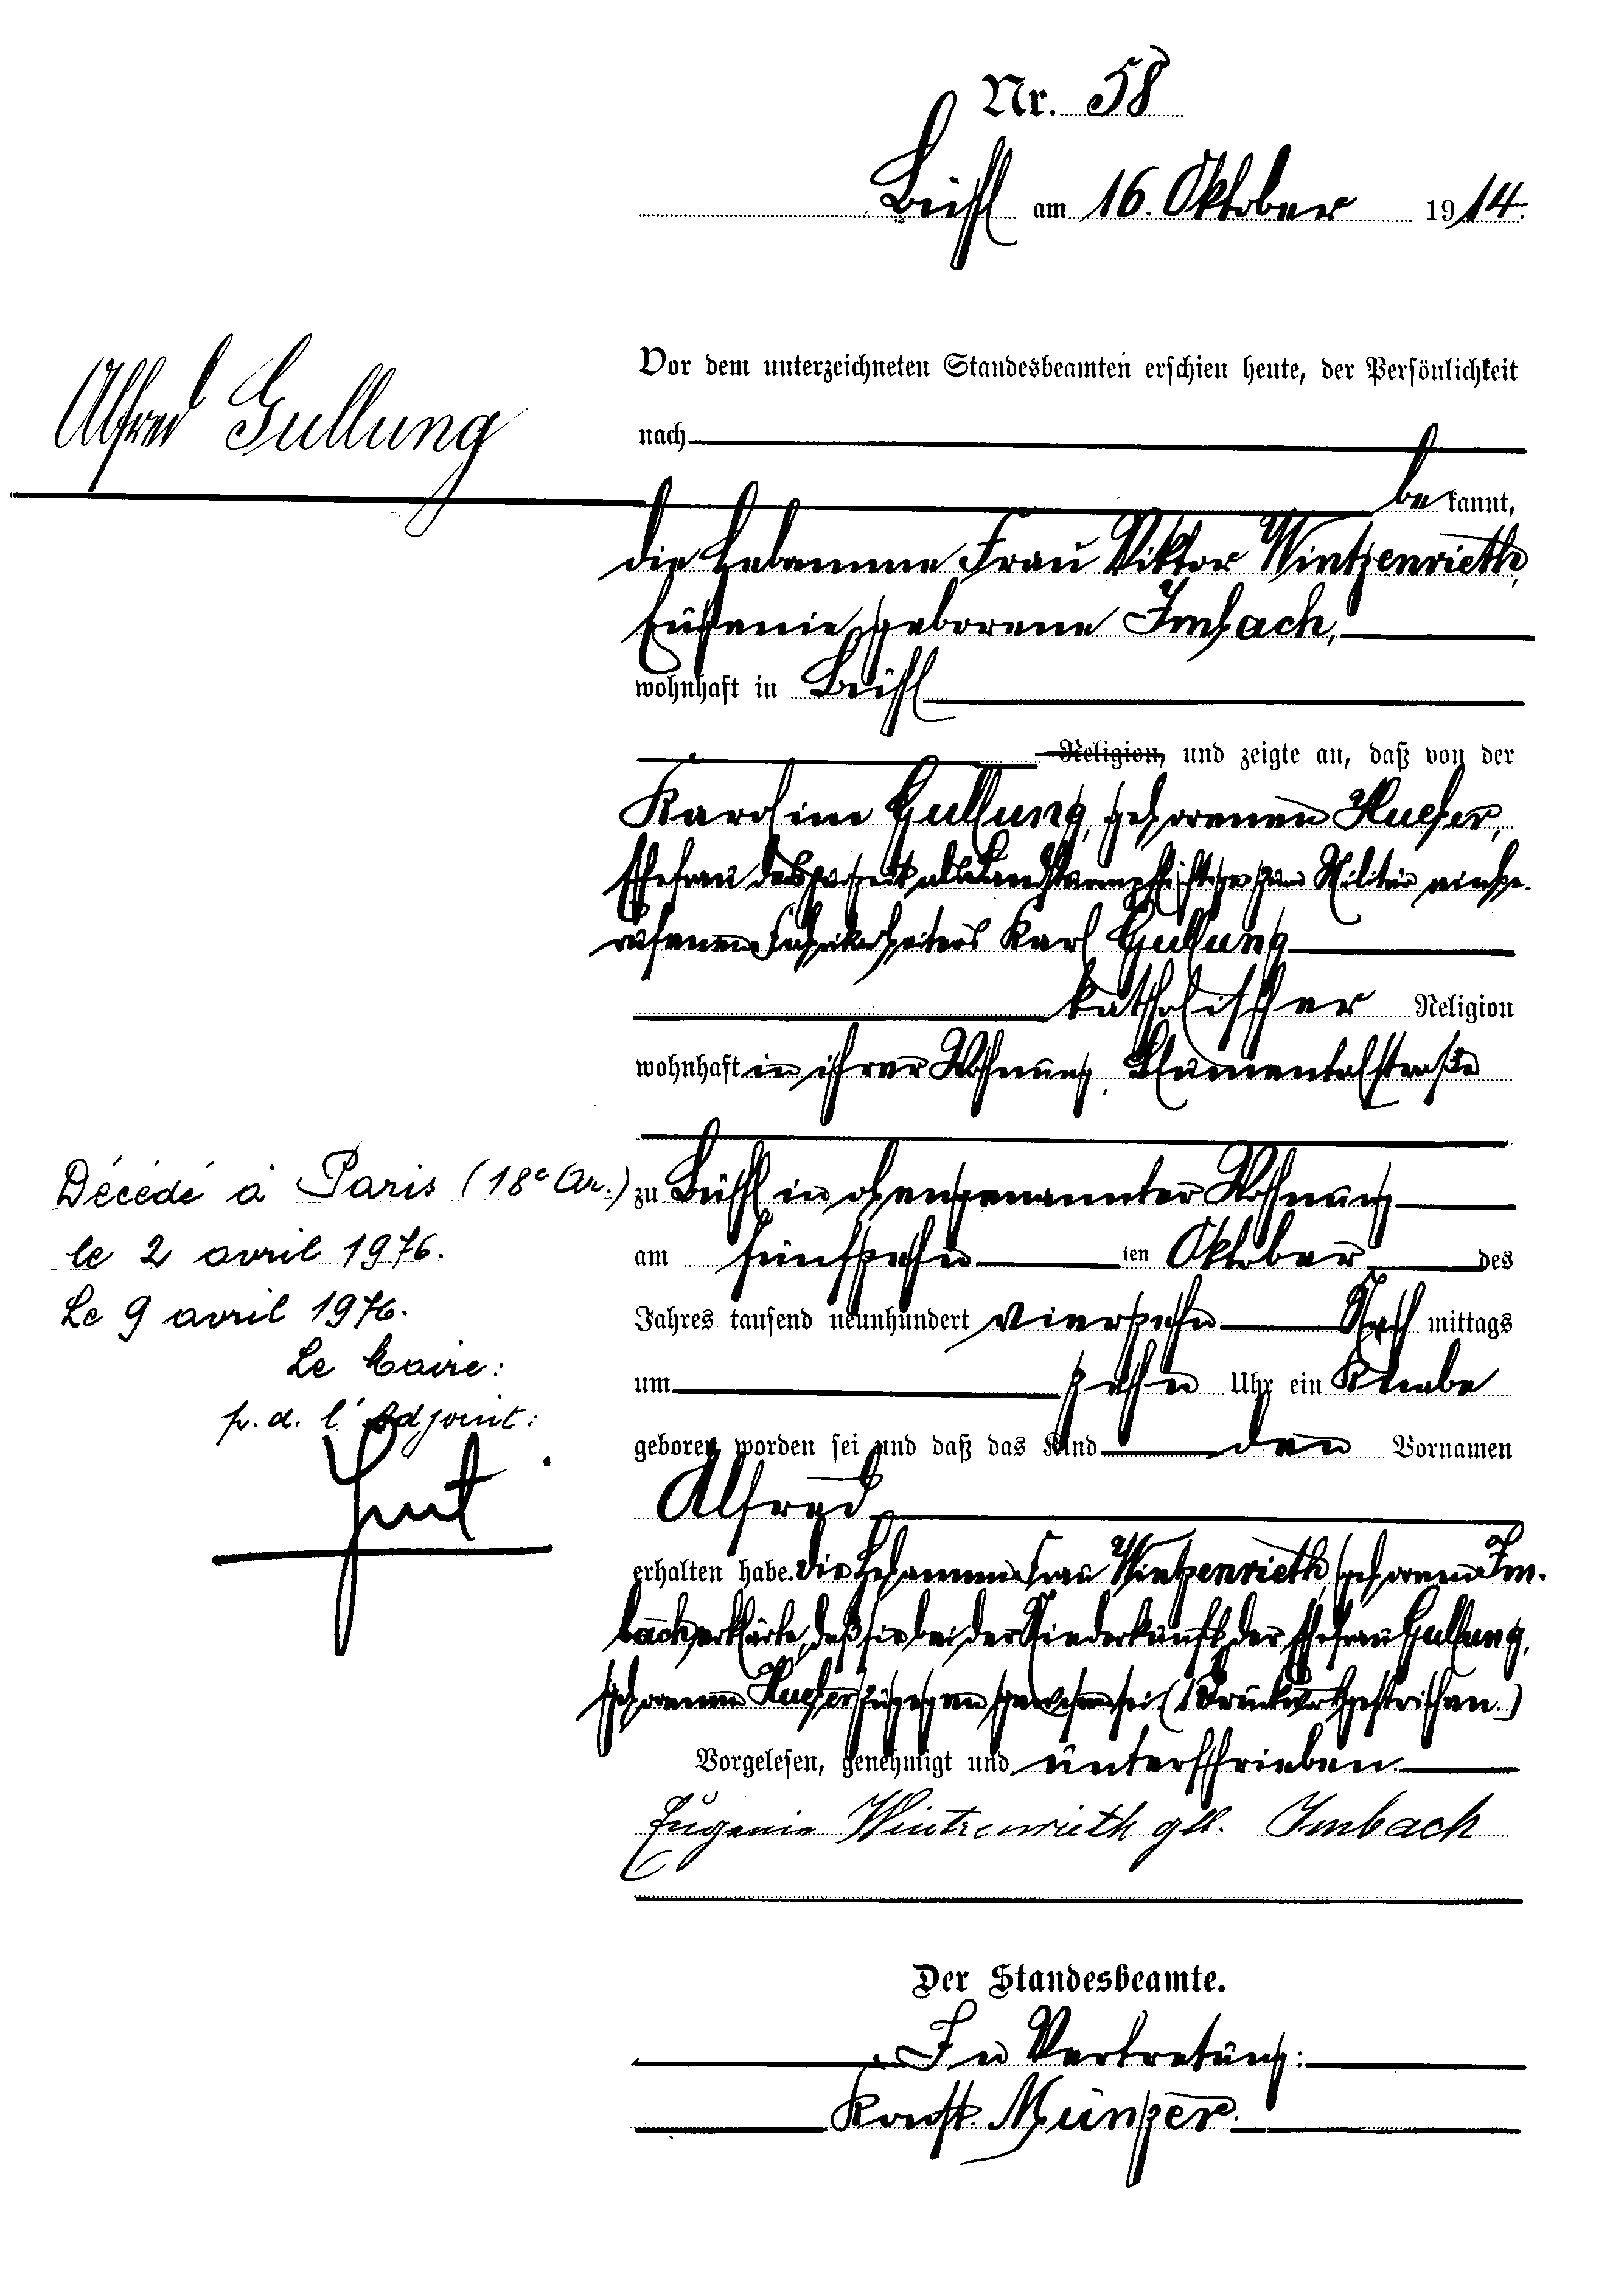 Nr. 58
Bühl am 16. Oktober 1914.
Alfred Gullung
Vor dem unterzeichneten Standesbeamten erschien heute, der Persönlichkeit
nach
bekannt,
die Hebamme Frau Viktor Wintzenrieth,
Eugenie, geborene Imbach,
wohnhaft in Bühl
Religion, und zeigte an, daß von der
Karoline Gullung, geborenen Hueber,
Ehefrau des zurzeit als Landsturmpflichtiger zum Militär einge-
rufenen Fabrikarbeiters Karl Gullung
katholischer Religion
wohnhaft in ihrer Wohnung, Blumentalstraße
zu Bühl in obengenannter Wohnung
am fünfzehn ten Oktober des
Jahres tausend neunhundert vierzehn Nachmittags
um zehn Uhr ein Knabe
geboren worden sei und daß das Kind den Vornamen
Alfred
erhalten habe. Die Hebamme Frau Wintzenrieth, geborene Im-
bach, erklärte, daß sie bei der Niederkunft der Ehefrau Gullung,
geborenen Hueber zugegen gewesen sei (1 Druckwort gestrichen.)
Vorgelesen, genehmigt und unterschrieben.
Eugenie Wintzenrieth geb. Imbach
Der Standesbeamte.
In Vertretung:
Konst. Münzer.
Décédé à Paris (18e Ar.)
le 2 avril 1976.
Le 9 avril 1976.
Le Maire:
p. d. l'Adjoint: